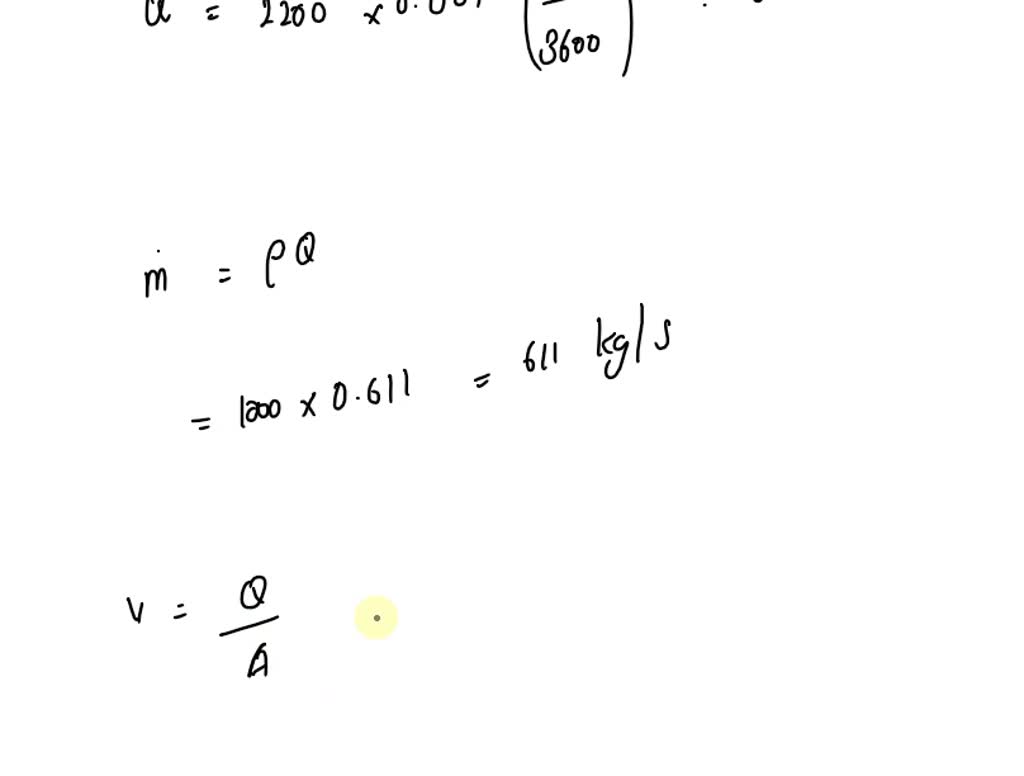 = 2200 ×
3600
ṁ = ρQ
= 1000 × 0.611 = 611 kg/s
V = Q
A